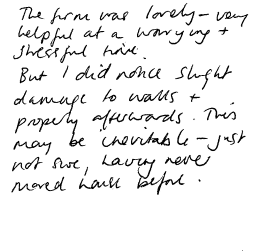 The firm was lovely - very
helpful at a worrying +
stressful time.
But I did notice slight
damage to walls +
property afterwards. This
may be inevitable - just
not sure, having never
moved house before.